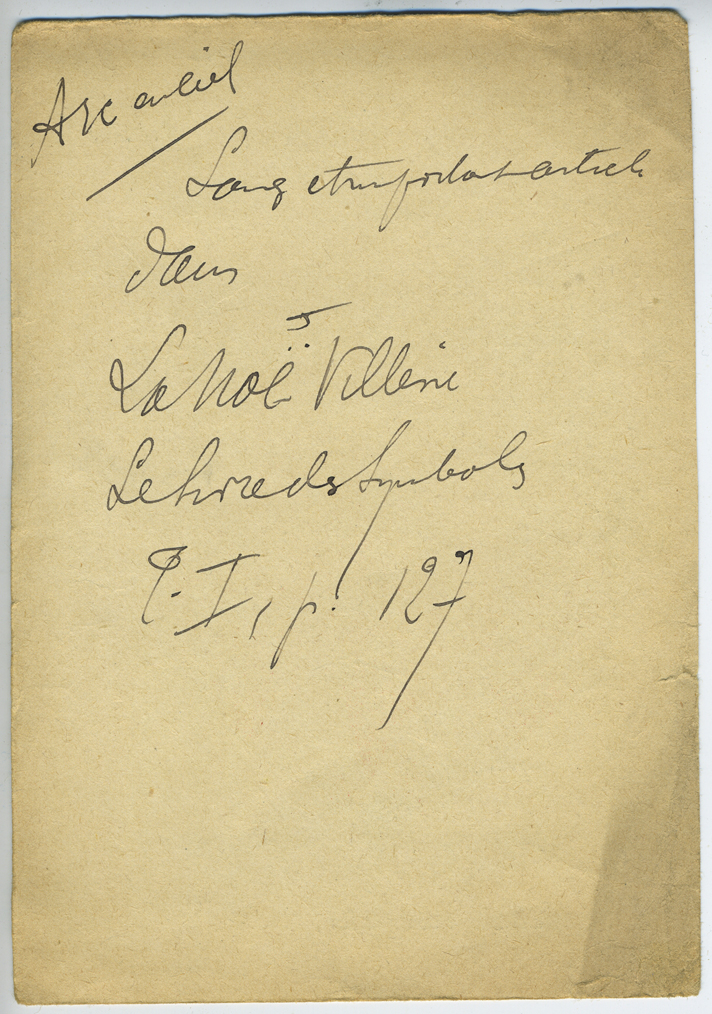 Arc en ciel
Long et important article
dans
Lanoë Villène
Le livre des Symboles
T. I, p. 127